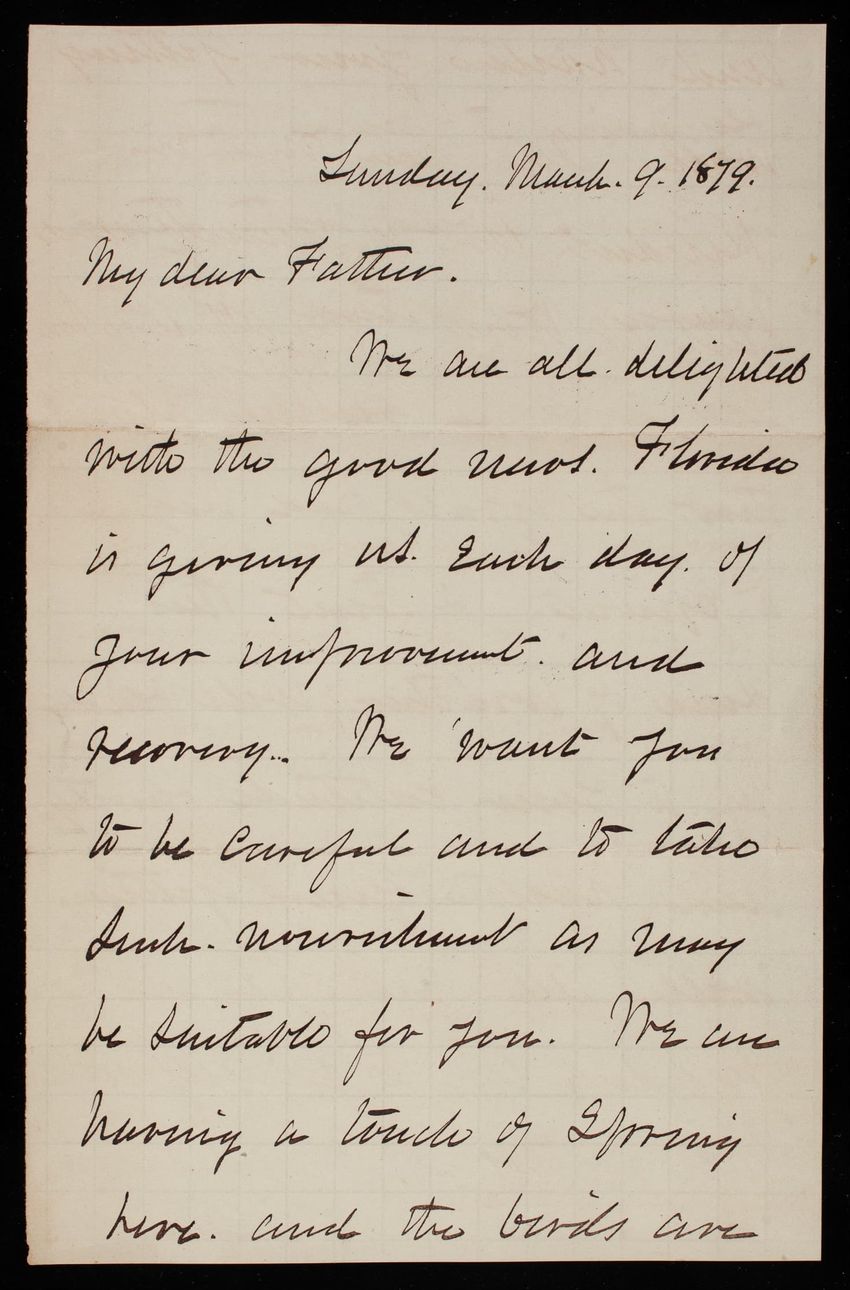 Sunday. March. 9. 1879.
My dear Father.
We are all delighted
with the good news. Florida
is giving us. Each day. of
your improvement. and
recovery... We want you
to be careful and to take
such. nourishment as may
be suitable for you. We are
having a touch of Spring
here. and the birds are